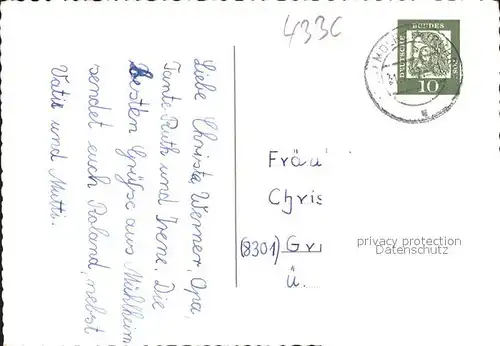 433C
DEUTSCHE BUNDESPOST
10
Liebe Christa, Werner, Opa,
Tante Ruth und Irene. Die
besten Grüße aus Mühlheim
sendet euch Roland, nebst
Vati und Mutti.
Fräu
Chris
(8301) Gr
ü.
privacy protection
Datenschutz